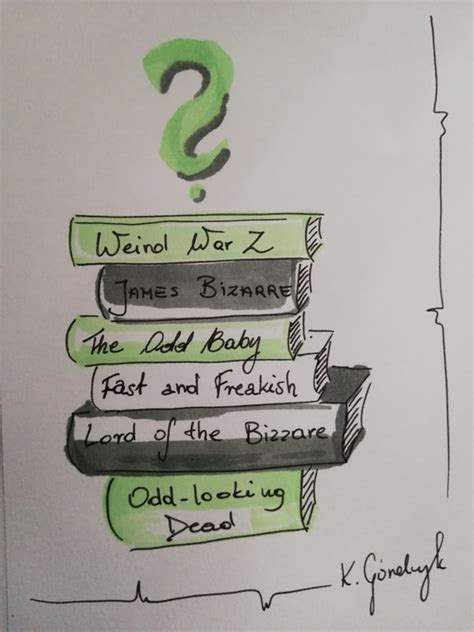 ?
Weird War Z
JAMES BIZARRE
The Odd Baby
Fast and Freakish
Lord of the Bizzare
Odd-looking
Dead
K.